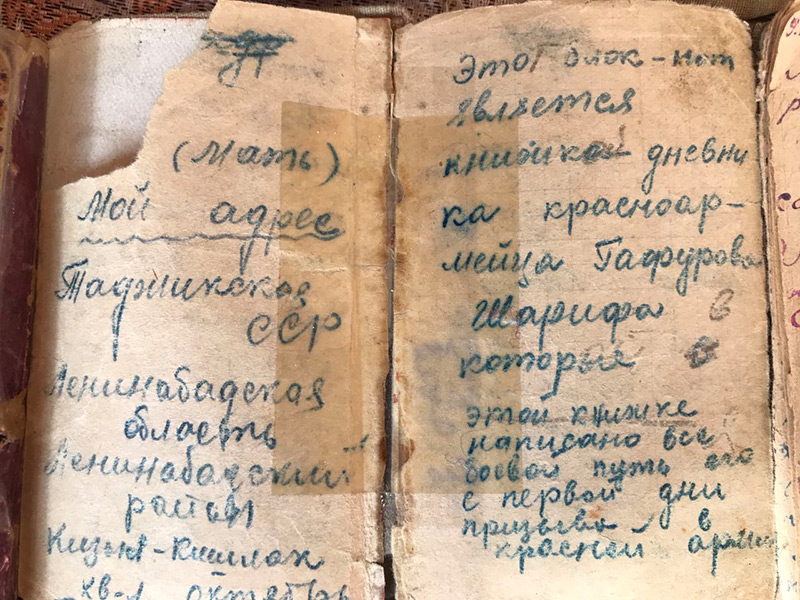 (Мать)
Мой адрес
Таджикская
ССР
Ленинабадская
область
Ленинабадский
район
Кизил-Кишлак
кв-л октябрь
Этот блок-нот
является
книжкой дневни
ка красноар-
мейца Гафурова
Шарифа в
которые в
этой книжке
написано все
боевой путь его
с первой дни
призыва в
красной армии